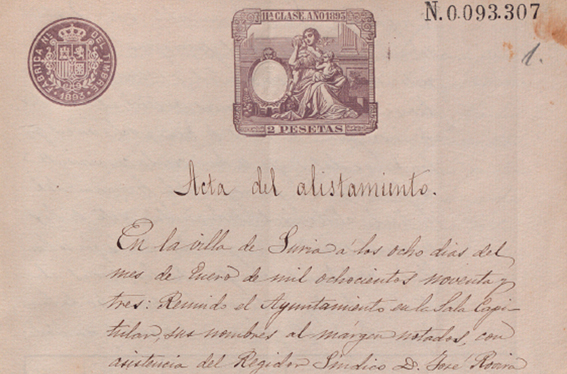 11ª CLASE. AÑO 1893
N.0.093.307
FÁBRICA N. DEL TIMBRE
1893
1.
2 PESETAS
Acta del alistamiento.
En la villa de Suria á los ocho dias del
mes de Enero de mil ochocientos noventa y
tres: Reunido el Ayuntamiento en la Sala Capi-
tular, sus nombres al márgen notados, con
asistencia del Regidor Sindico D. José